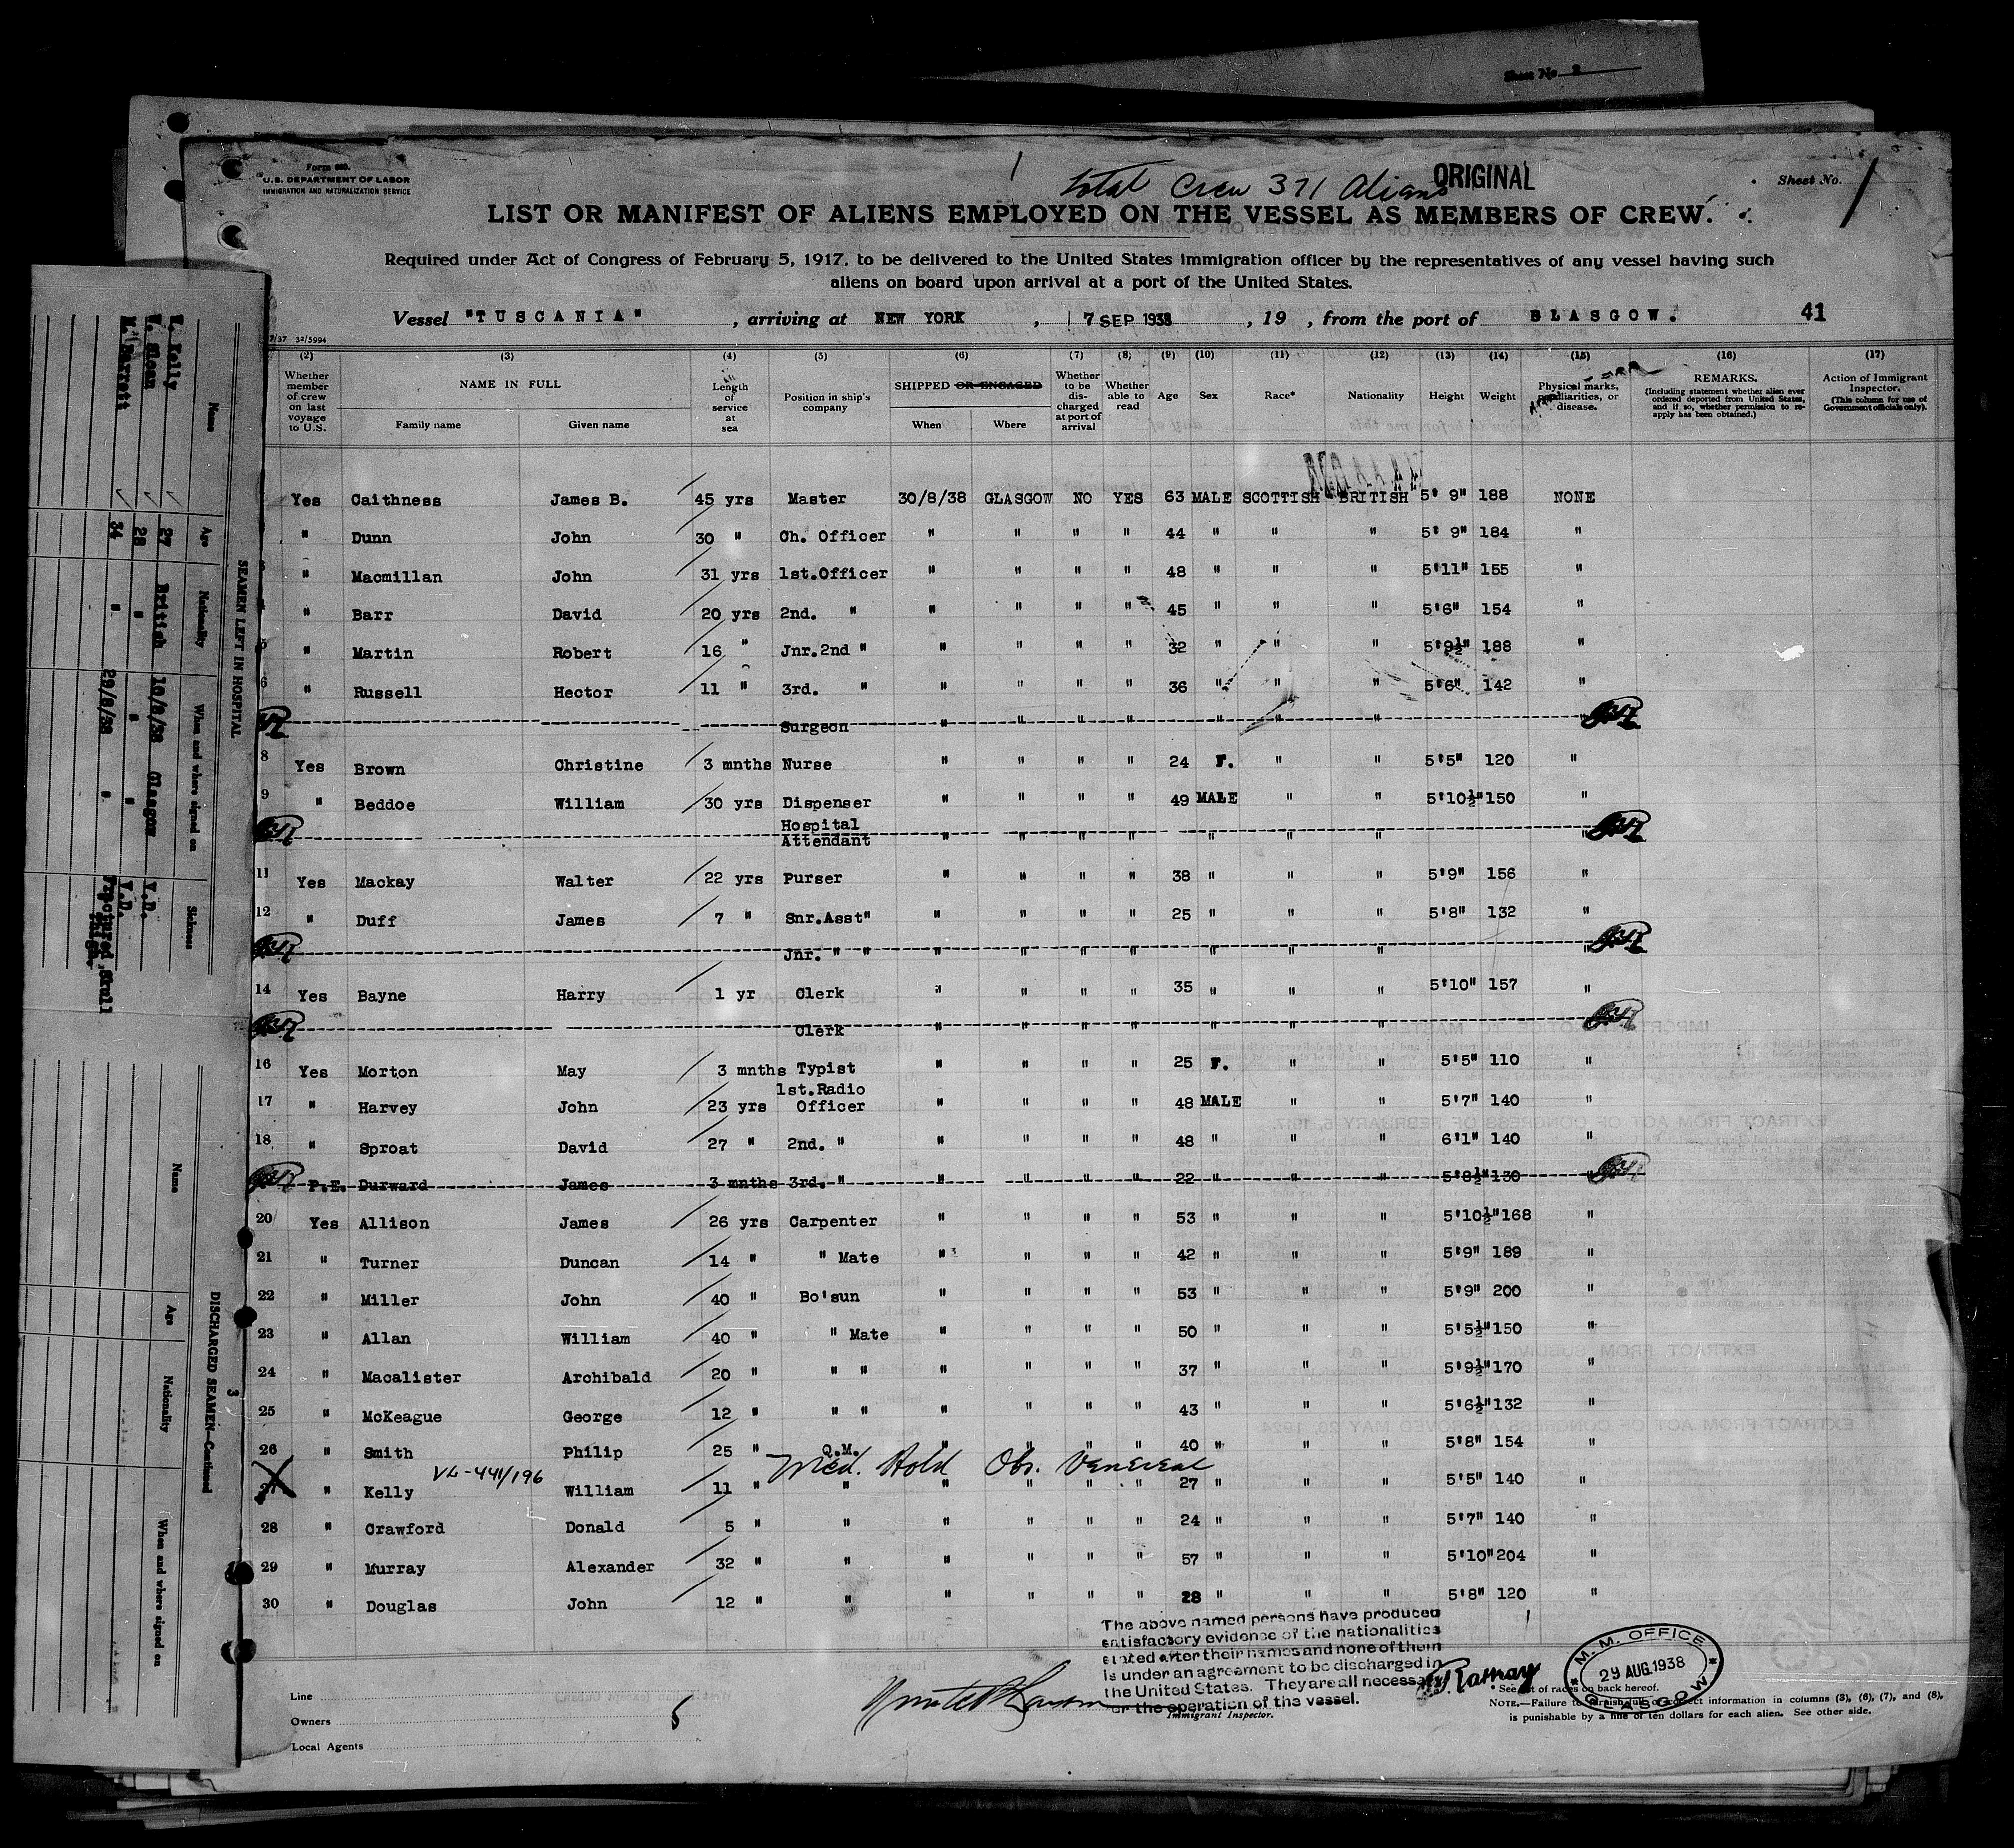 Sheet No. 2
Form 680.
U. S. DEPARTMENT OF LABOR
IMMIGRATION AND NATURALIZATION SERVICE
Total Crew 371 Aliens
ORIGINAL
Sheet No. 1
LIST OR MANIFEST OF ALIENS EMPLOYED ON THE VESSEL AS MEMBERS OF CREW.
Required under Act of Congress of February 5, 1917, to be delivered to the United States immigration officer by the representatives of any vessel having such
aliens on board upon arrival at a port of the United States.
Vessel "TUSCANIA", arriving at NEW YORK, 7 SEP 1938, 19 , from the port of GLASGOW. 41
7/37 32/5994
(2) (3) (4) (5) (6) (7) (8) (9) (10) (11) (12) (13) (14) (15) (16) (17)
Whether member of crew on last voyage to U.S.
NAME IN FULL
Family name
Given name
Length of service at sea
Position in ship's company
SHIPPED OR ENGAGED
When
Where
Whether to be discharged at port of arrival
Whether able to read
Age
Sex
Race*
Nationality
Height
Weight
Physical marks, peculiarities, or disease.
REMARKS.
(Including statement whether alien ever ordered deported from United States, and if so, whether permission to reapply has been obtained.)
Action of Immigrant Inspector.
(This column for use of Government officials only).
Yes Caithness James B. 45 yrs Master 30/8/38 GLASGOW NO YES 63 MALE SCOTTISH BRITISH 5' 9" 188 NONE
" Dunn John 30 " Ch. Officer " " " " 44 " " " 5' 9" 184 "
" Macmillan John 31 yrs 1st.Officer " " " " 48 " " " 5'11" 155 "
" Barr David 20 yrs 2nd. " " " " " 45 " " " 5'6" 154 "
5 " Martin Robert 16 " Jnr.2nd " " " " " 32 " " " 5'9½" 188 "
6 " Russell Hector 11 " 3rd. " " " " " 36 " " " 5'6" 142 "
Surgeon " " " " " " " "
8 Yes Brown Christine 3 mnths Nurse " " " " 24 F. " " 5'5" 120 "
9 " Beddoe William 30 yrs Dispenser " " " " 49 MALE " " 5'10½" 150 "
Hospital
Attendant " " " " " " " "
11 Yes Mackay Walter 22 yrs Purser " " " " 38 " " " 5'9" 156 "
12 " Duff James 7 " Snr.Asst" " " " " 25 " " " 5'8" 132 "
Jnr. " " " " " " " " " "
14 Yes Bayne Harry 1 yr Clerk " " " " 35 " " " 5'10" 157 "
Clerk " " " " " " " "
16 Yes Morton May 3 mnths Typist " " " " 25 F. " " 5'5" 110 "
1st.Radio
17 " Harvey John 23 yrs Officer " " " " 48 MALE " " 5'7" 140 "
18 " Sproat David 27 " 2nd. " " " " " 48 " " " 6'1" 140 "
P.E. Durward James 3 mnths 3rd. " " " " " 22 " " " 5'8½" 130 "
20 Yes Allison James 26 yrs Carpenter " " " " 53 " " " 5'10½" 168 "
21 " Turner Duncan 14 " " Mate " " " " 42 " " " 5'9" 189 "
22 " Miller John 40 " Bo'sun " " " " 53 " " " 5'9" 200 "
23 " Allan William 40 " " Mate " " " " 50 " " " 5'5½" 150 "
24 " Macalister Archibald 20 " " " " " " " 37 " " " 5'9½" 170 "
25 " McKeague George 12 " " " " " " " 43 " " " 5'6½" 132 "
26 " Smith Philip 25 " Q.M. " " " " 40 " " " 5'8" 154 "
VL-441/196 Med. Hold Obs. Venereal
27 " Kelly William 11 " " " " " " 27 " " " 5'5" 140 "
28 " Crawford Donald 5 " " " " " " 24 " " " 5'7" 140 "
29 " Murray Alexander 32 " " " " " " 57 " " " 5'10" 204 "
30 " Douglas John 12 " " " " " " 28 " " " 5'8" 120 "
The above named persons have produced
satisfactory evidence of the nationalities
stated after their names and none of them
is under an agreement to be discharged in
the United States. They are all necessary
for the operation of the vessel.
Immigrant Inspector.
M. M. OFFICE
29 AUG.1938
GLASGOW
Line
Owners
Local Agents
5
See list of races on back hereof.
NOTE.—Failure to furnish full or correct information in columns (3), (6), (7), and (8),
is punishable by a fine of ten dollars for each alien. See other side.
SEAMEN LEFT IN HOSPITAL
Name Age Nationality When and where signed on Sickness
W. Kelly 27 British 10/8/38 Glasgow V.D.
W. Sloan 28 " " " V.D.
M. Barrett 34 " 29/8/38 " Fractured Skull
& Thigh.
3
DISCHARGED SEAMEN—Continued
Name Age Nationality When and where signed on